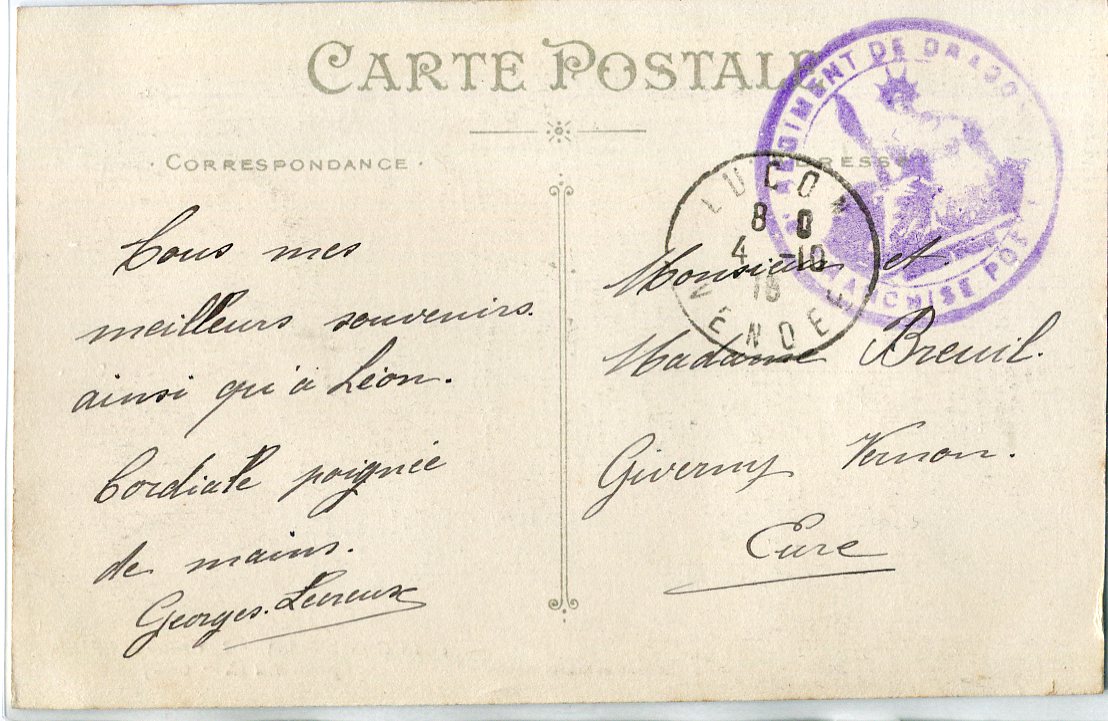 CARTE POSTALE
CORRESPONDANCE
Tous mes
meilleurs souvenirs
ainsi qu'à Léon.
Cordiale poignée
de mains.
Georges
ADRESSE
Monsieur et
Madame Breuil.
Giverny Vernon.
Eure
LUÇON
8 0
4 -10
VENDÉE
REGIMENT DE DRAGO
FRANCHISE POS